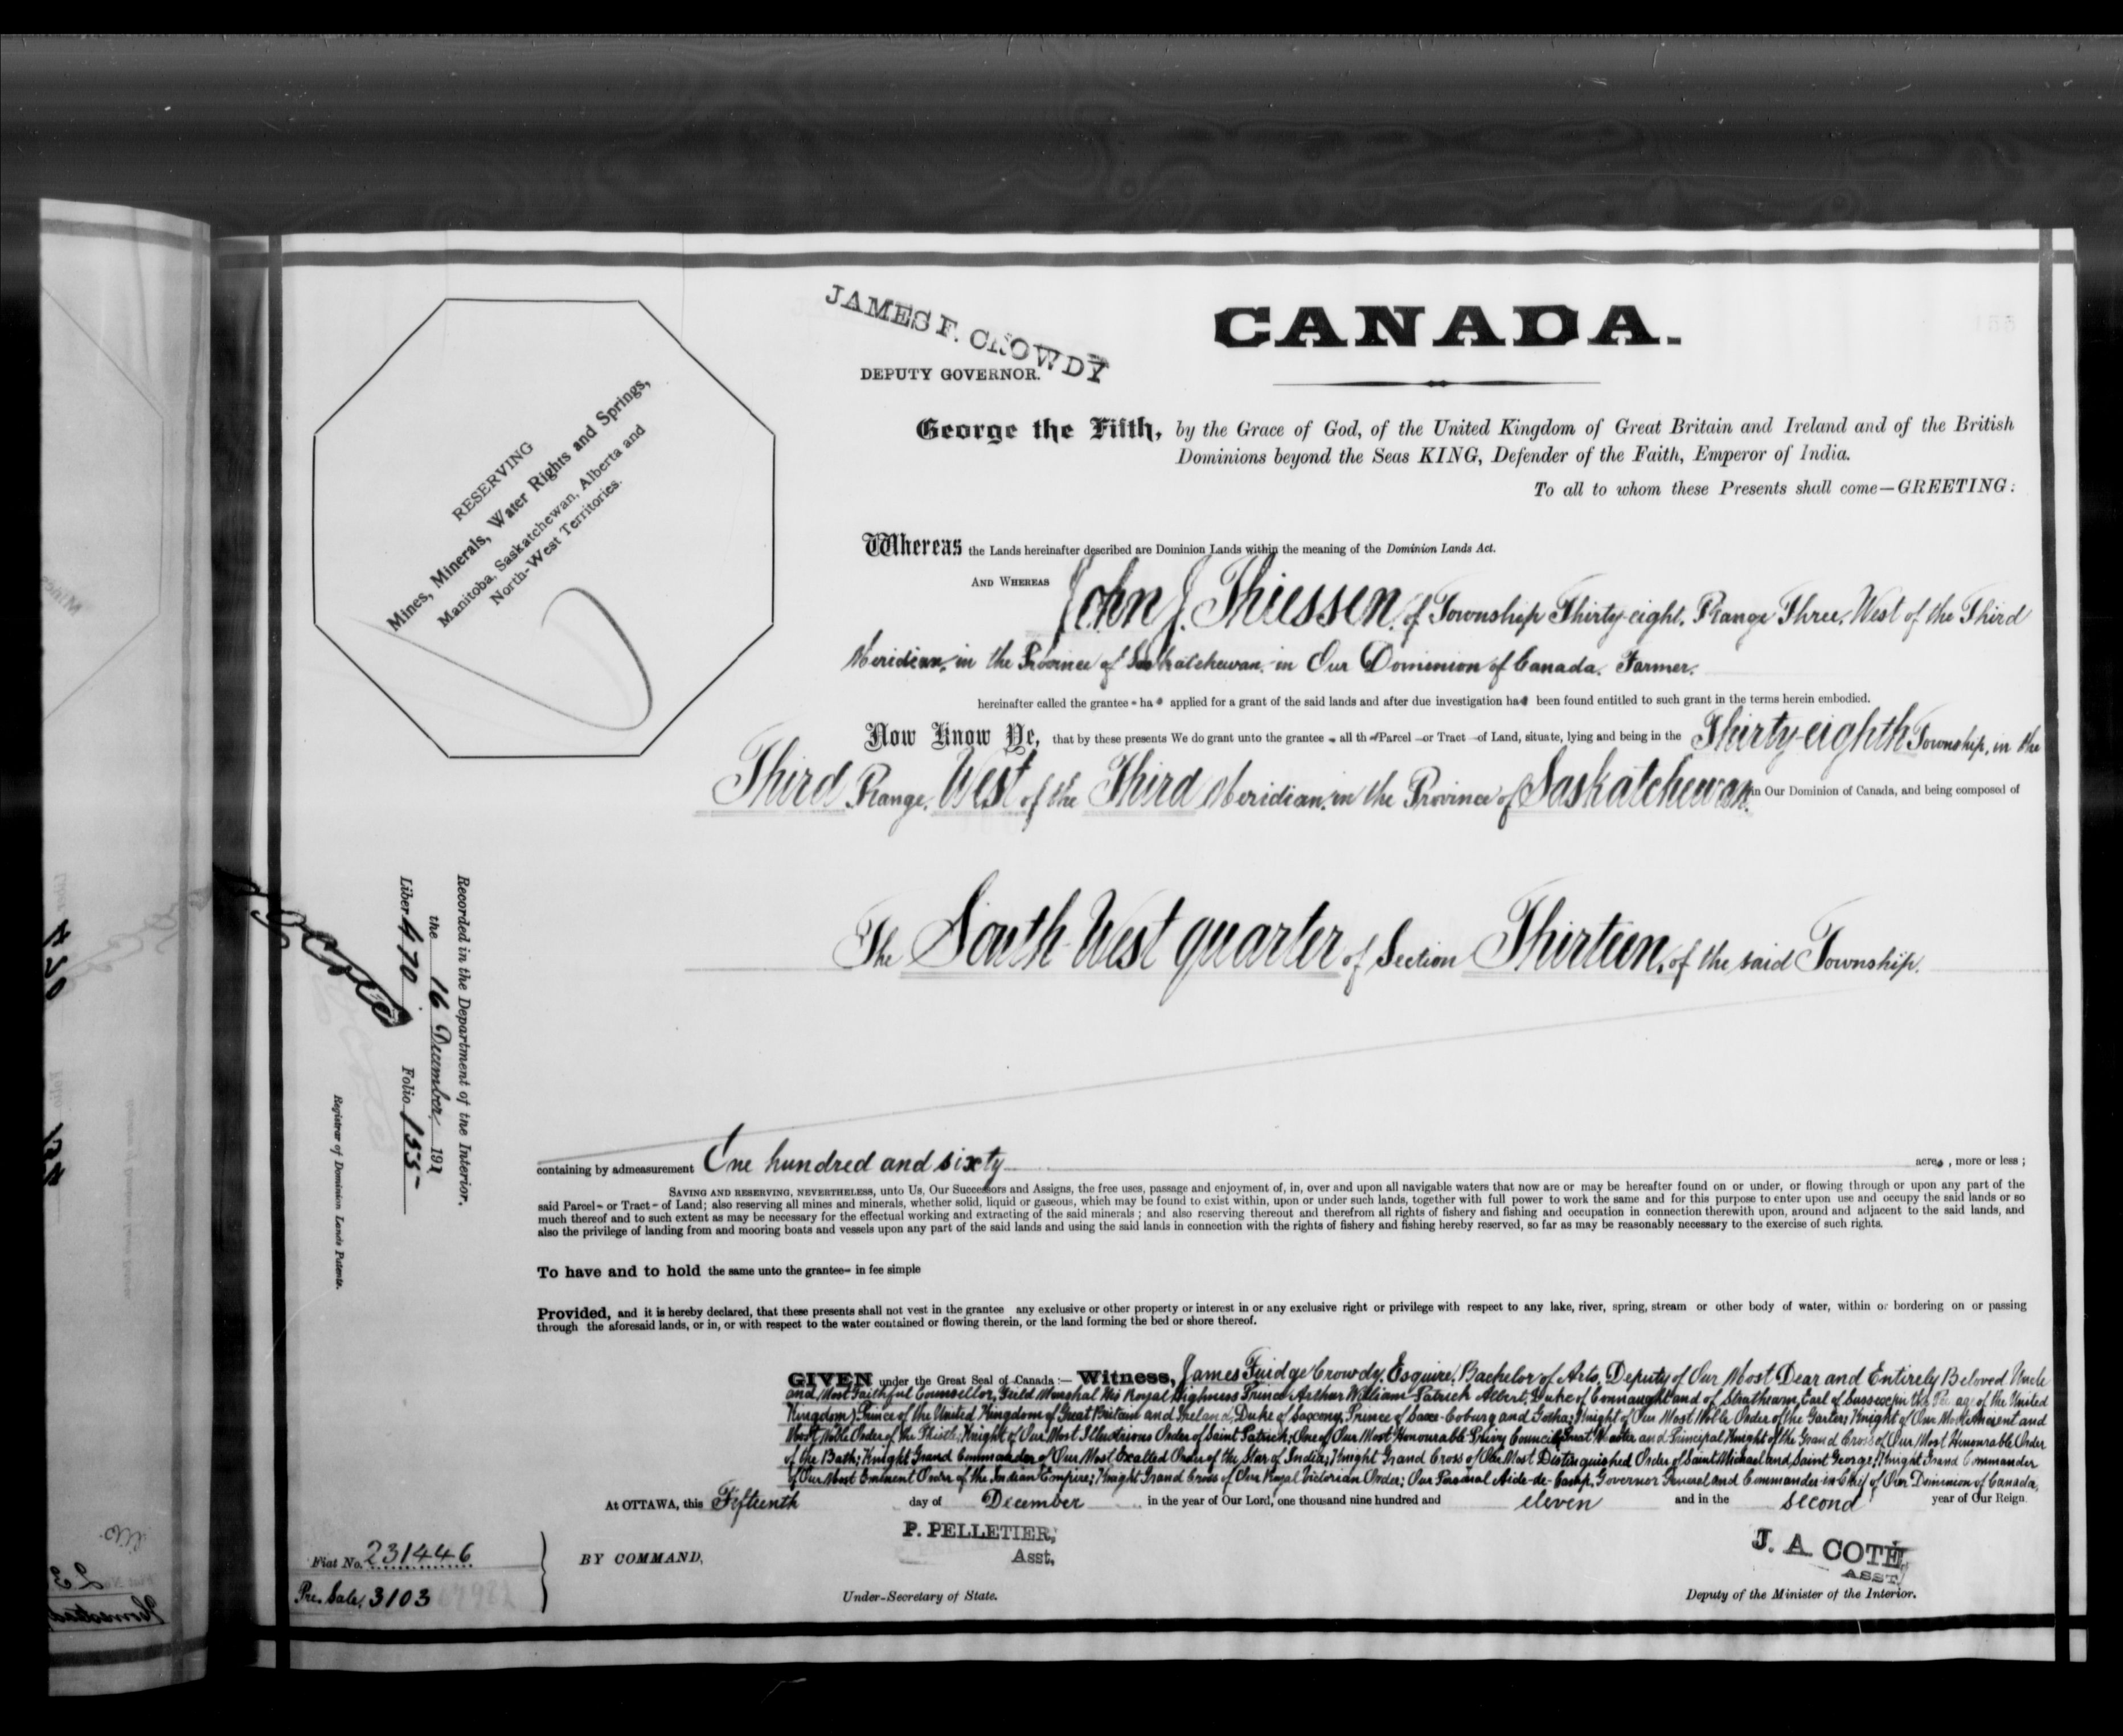 JAMES F. CROWDY
DEPUTY GOVERNOR.
CANADA.
RESERVING
Mines, Minerals, Water Rights and Springs,
Manitoba, Saskatchewan, Alberta and
North-West Territories.
George the Fifth, by the Grace of God, of the United Kingdom of Great Britain and Ireland and of the British
Dominions beyond the Seas KING, Defender of the Faith, Emperor of India.
To all to whom these Presents shall come—GREETING:
Whereas the Lands hereinafter described are Dominion Lands within the meaning of the Dominion Lands Act.
AND WHEREAS John J. Thiessen, of Township Thirty-eight, Range Three, West of the Third
Meridian, in the Province of Saskatchewan, in Our Dominion of Canada, Farmer,
hereinafter called the grantee - has applied for a grant of the said lands and after due investigation has been found entitled to such grant in the terms herein embodied.
Now Know Ye, that by these presents We do grant unto the grantee - all that Parcel - or Tract - of Land, situate, lying and being in the Thirty-eighth Township, in the
Third Range, West of the Third Meridian, in the Province of Saskatchewan, in Our Dominion of Canada, and being composed of
The South West quarter of Section Thirteen, of the said Township.
Recorded in the Department of the Interior,
the 16 December 1911
Liber 470 Folio 155
Registrar of Dominion Lands Patents.
containing by admeasurement One hundred and sixty acres, more or less;
SAVING AND RESERVING, NEVERTHELESS, unto Us, Our Successors and Assigns, the free uses, passage and enjoyment of, in, over and upon all navigable waters that now are or may be hereafter found on or under, or flowing through or upon any part of the
said Parcel - or Tract - of Land; also reserving all mines and minerals, whether solid, liquid or gaseous, which may be found to exist within, upon or under such lands, together with full power to work the same and for this purpose to enter upon use and occupy the said lands or so
much thereof and to such extent as may be necessary for the effectual working and extracting of the said minerals; and also reserving thereout and therefrom all rights of fishery and fishing and occupation in connection therewith upon, around and adjacent to the said lands, and
also the privilege of landing from and mooring boats and vessels upon any part of the said lands and using the said lands in connection with the rights of fishery and fishing hereby reserved, so far as may be reasonably necessary to the exercise of such rights.
To have and to hold the same unto the grantee - in fee simple
Provided, and it is hereby declared, that these presents shall not vest in the grantee any exclusive or other property or interest in or any exclusive right or privilege with respect to any lake, river, spring, stream or other body of water, within or bordering on or passing
through the aforesaid lands, or in, or with respect to the water contained or flowing therein, or the land forming the bed or shore thereof.
GIVEN under the Great Seal of Canada:— Witness, James Fuidge Crowdy, Esquire, Bachelor of Arts, Deputy of Our Most Dear and Entirely Beloved Uncle
and Most Faithful Counsellor, Field Marshal His Royal Highness Prince Arthur William Patrick Albert, Duke of Connaught and of Strathearn, Earl of Sussex in the Peerage of the United
Kingdom, Prince of the United Kingdom of Great Britain and Ireland, Duke of Saxony, Prince of Saxe-Coburg and Gotha; Knight of Our Most Noble Order of the Garter; Knight of Our Most Ancient and
Most Noble Order of the Thistle; Knight of Our Most Illustrious Order of Saint Patrick; One of Our Most Honourable Privy Council; Great Master and Principal Knight of the Grand Cross of Our Most Honourable Order
of the Bath; Knight Grand Commander of Our Most Exalted Order of the Star of India; Knight Grand Cross of Our Most Distinguished Order of Saint Michael and Saint George; Knight Grand Commander
of Our Most Eminent Order of the Indian Empire; Knight Grand Cross of Our Royal Victorian Order; Our Personal Aide-de-Camp, Governor General and Commander-in-Chief of Our Dominion of Canada,
At OTTAWA, this Fifteenth day of December in the year of Our Lord, one thousand nine hundred and eleven and in the second year of Our Reign
P. PELLETIER,
Asst,
J. A. COTÉ,
ASST.
BY COMMAND,
Under-Secretary of State.
Deputy of the Minister of the Interior.
Fiat No. 231446
Pre. Sale, 3103